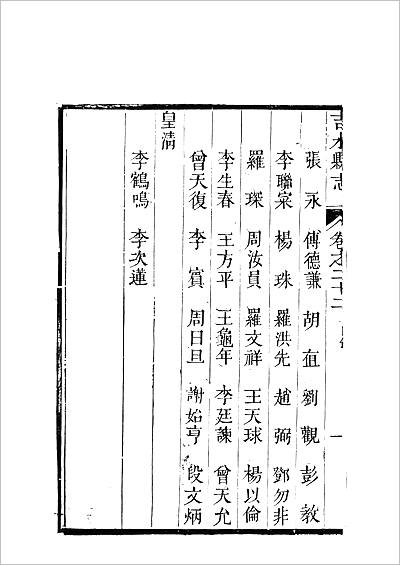 吉水縣志 卷之三十二
張永 傅德謙 胡直 劉觀 彭教
李聯寀 楊珠 羅洪先 趙弼 鄧勿非
羅琛 周汝員 羅文祥 王天球 楊以倫
李生春 王方平 王龜年 李廷諫 曾天允
曾天復 李賓 周日旦 謝始亨 段文炳
皇清
李鶴鳴 李次蓮